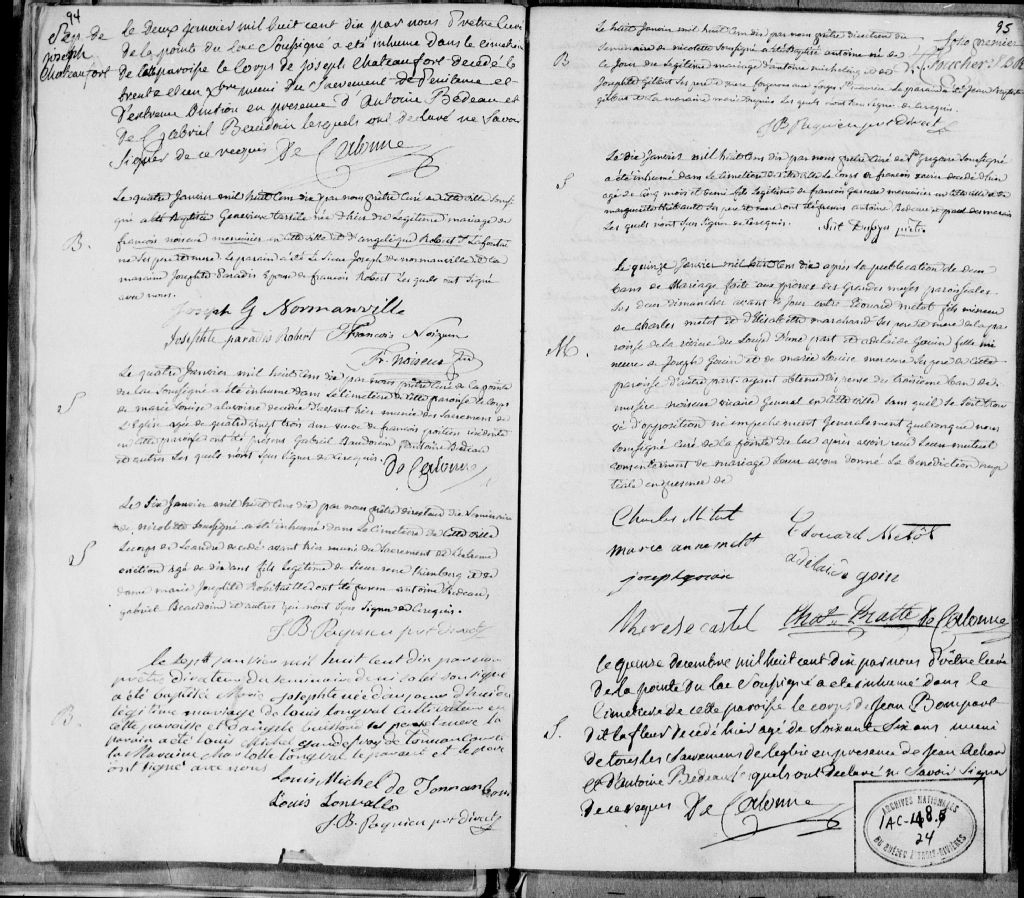 94
Sep. de
joseph
Chateaufort
le deux janvier mil huit cent dix par nous Prêtre Curé
de la pointe du lac Soussigné a été inhumé dans le cimetiere
de cette paroisse le Corps de joseph Chateaufort decedé le
trente et un xbre muni du Sacrement de Penitence et
D'extreme Onction en presence d'Antoine Bedeau et
de Gabriel Beaudoin lesquels ont declaré ne Savoir
Signer de ce requis De Calonne
B.
Le quatre Janvier mil huit Cens dix par nous prêtre Curé en Cette ville Soussi
gné a été Baptisée Genevieve née d'hier du Legitime mariage de
françois noiseux menuisier en Cette ville et d'angelique Robert
ses pere et mere. Le parain a été Le Sieur Joseph de normanville et la
maraine Josephte Paradis Epouse de françois Robert Les quels ont Signé
avec nous.
Joseph G Normanville
Josephte paradis Robert François Noizeux
Fr. Noiseux
S
Le quatre Janvier mil huit Cens dix par nous prêtre Curé de la pointe
du lac Soussigné a été inhumée dans Le Cimetiere de Cette paroisse Le Corps
de marie Louise decedée d'avant hier munie des Sacremens de
L'Eglise agée de quatre vingt trois ans veuve de françois
en Cette paroisse ont été présens Gabriel Baudoin Antoine Bedeau
et autres Les quels n'ont Sçu Signer de Ce requis.
De Calonne
S
Le Six Janvier mil huit Cens dix par nous prêtre directeur du Seminaire
de nicolette Soussigné a été inhumé dans Le Cimetiere de Cette ville
Le corps de Leandre decedé avant hier muni du Sacrement de L'extreme
onction agé de dix ans fils Legitime de Sieur rené Kimberg et de
dame marie Josephte Robitaille ont été presens antoine Bedeau,
gabriel Beaudoin et autres qui n'ont Sçu Signer de Ce requis.
J. B. Paquien ptr direct
B.
le sept janvier mil huit cent dix par nous
prêtre directeur du seminaire de nicolet soussigné
a été baptisé Marie Josephte née d'hier du
legitime mariage de louis longval Cultivateur en
cette paroisse et d'angele ses pere et mere la
parain a été louis Michel de Tonnancourt
la Maraine Charlotte longval le parain et le pere
ont signé avec nous
Louis Michel de Tonnancour
Louis Lonvalle
J. B. Paquien ptr direct
95
B
Le huit Janvier mil huit Cens dix par nous prêtre directeur du
Seminaire de nicolette Soussigné a été Baptisé antoine né de
Ce jour du Legitime mariage d'antoine et de
Josephte Gilbert Ses pere et mere Le parain
gilbert et La maraine marie Les quels n'ont Sçu Signer de Ce requis.
J. B. Paquien ptr direct
S
Le dix Janvier mil huit Cens dix par nous prêtre Curé de St. Gregoire Soussigné
a été inhumé dans Le Cimetiere de Cette ville Le Corps de françois xavier decedé d'hier
agé de Cinq mois et demi fils Legitime de françois menuisier en Cette ville et de
marguerite Ses pere et mere ont été presens antoine Bedeau et
Les quels n'ont Sçu Signer de Ce requis.
M.
Le quinze Janvier mil huit Cens dix après la publication de deux
bans de Mariage faite aux prônes des Grandes messes paroissiales
Les deux dimanches avant ce Jour entre Edouard metot fils mineur
de Charles metot et d'Elisabette marchand Ses pere et mere de la pa
roisse de la riviere du Loup D'une part et adelaide Gouin fille mi
neure de Joseph Gouin et de marie Louise Ses pere et mere de Cette
paroisse D'autre part ayant obtenu dispense du troisieme ban de
messire noiseux vicaire General en Cette ville Sans quil Se Soit trou
vé d'opposition ni empechement Generalement quelconque nous
Soussigné Curé de la pointe du lac apres avoir reçu Leur mutuel
consentement de mariage Leur avons donné La benediction nup
tiale en presence de
Charles Metot
marie anne metot Edouard Metôt
joseph gouin adelaide goin
Therese castel Chas. Pratte De Calonne
S.
le quinze decembre mil huit cent dix par nous Prêtre Curé
de la pointe du lac Soussigné a été inhumé dans le
Cimetiere de cette paroisse le corps de Jean Bompart
dit la fleur decedé hier agé de Soixante Six ans muni
de tous les Sacremens de l'eglise en presence de Jean
et d'Antoine Bedeau lesquels ont declaré ne Savoir Signer
de ce requis De Calonne
ARCHIVES NATIONALES
1AC-48.
24
DU QUÉBEC À TROIS-RIVIÈRES